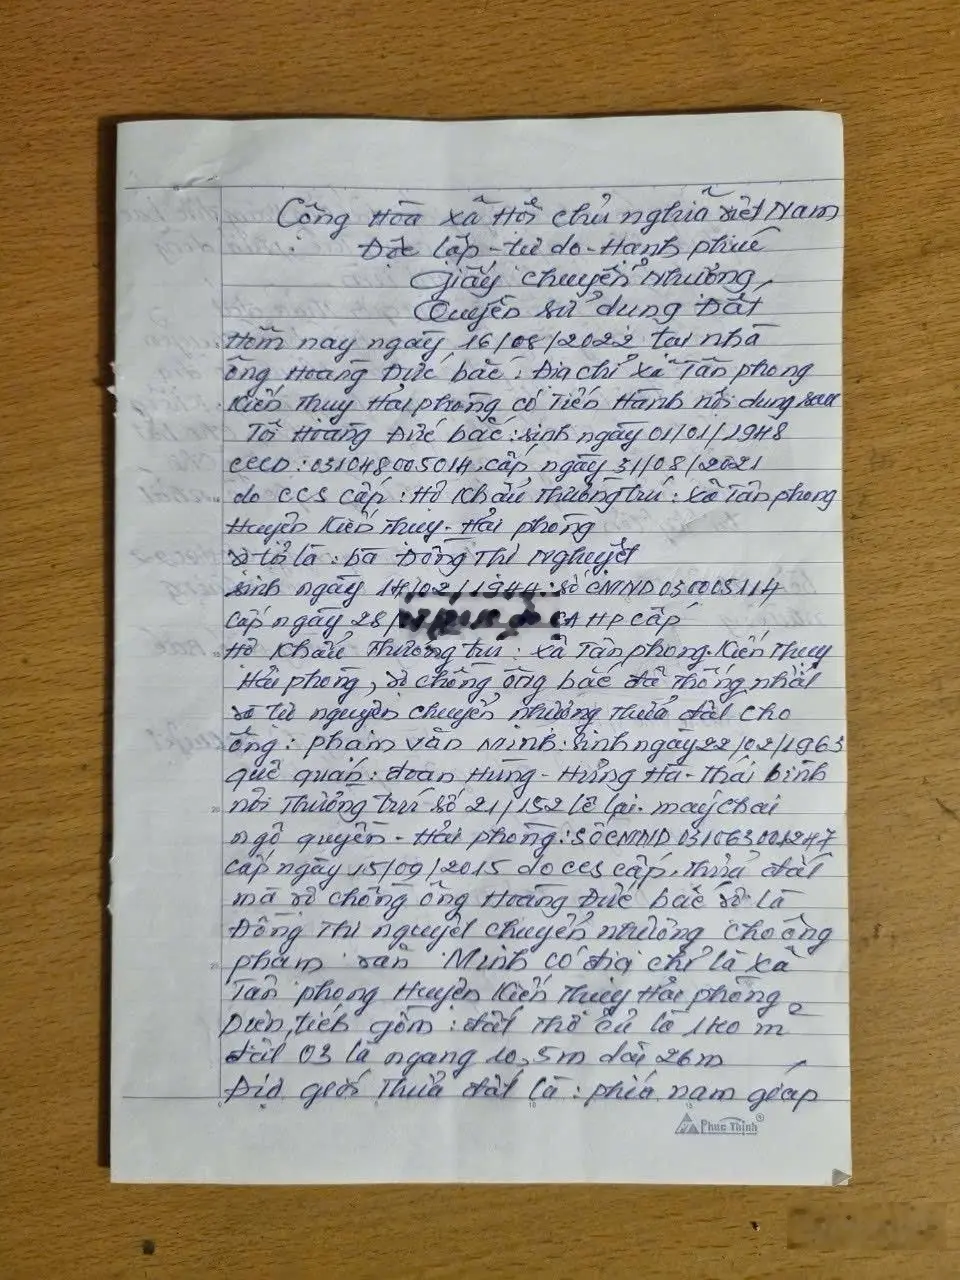 Cộng Hòa xã Hội chủ nghĩa việt Nam
Độc lập - tự do - Hạnh phúc
Giấy chuyển Nhượng
Quyền sử dụng Đất
Hôm nay ngày 16/08/2022 tại nhà
ông Hoàng Đức bắc. Địa chỉ xã Tân phong
Kiến Thụy Hải phòng có Tiến Hành nội dung sau
Tôi Hoàng Đức bắc: sinh ngày 01/01/1948
CCCD: 031048005014 cấp ngày 31/08/2021
do CCS cấp: Hộ Khẩu Thường trú: xã Tân phong
Huyện Kiến Thụy - Hải phòng
vợ tôi là: bà Đồng Thị Nguyệt
sinh ngày 14/02/1944: số CMND 030005114
cấp ngày 28/ CA HP cấp
Hộ Khẩu Thường trú: xã Tân phong. Kiến Thụy
Hải phòng, vợ chồng ông bắc đã thống nhất
và tự nguyện chuyển nhượng Thửa đất cho
ông: phạm văn Minh: Sinh ngày 22/02/1963
quê quán: đoan Hùng - Hưng Hà - Thái bình
nơi Thường trú số 21/152 lê lai. máy chai
ngô quyền - Hải phòng: SỐ CMND 031063001247
cấp ngày 15/09/2015 do CCS cấp. Thửa đất
mà vợ chồng ông Hoàng Đức bắc vợ là
Đồng Thị nguyệt chuyển nhượng cho ông
phạm văn Minh có địa chỉ là xã
Tân phong Huyện Kiến Thụy Hải phòng
Diện tích gồm: đất Thổ cư là m²
đất 03 là ngang 10,5m dài 26m
Địa giới Thửa đất là: phía nam giáp
Phuc Thịnh®